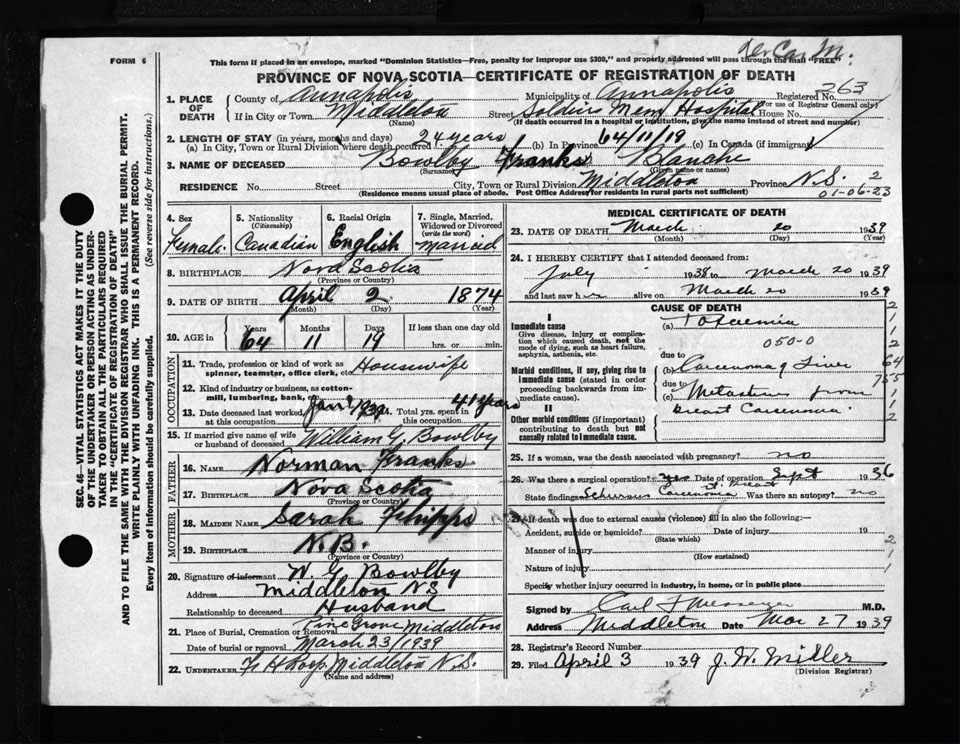 FORM 6
This form if placed in an envelope, marked "Dominion Statistics—Free, penalty for improper use $300," and properly addressed will pass through the mail "FREE".
PROVINCE OF NOVA SCOTIA—CERTIFICATE OF REGISTRATION OF DEATH
1. PLACE OF DEATH County of Annapolis Municipality of Annapolis Registered No. 263
(For use of Registrar General only)
If in City or Town Middleton Street Soldiers Mem Hospital House No.
(Name) (If death occurred in a hospital or institution, give the name instead of street and number)
2. LENGTH OF STAY (in years, months and days)
(a) In City, Town or Rural Division where death occurred 24 years (b) In Province 64/11/19 (c) In Canada (if immigrant)
3. NAME OF DECEASED Bowlby Franks Blanche
(Surname) (Given name or names)
RESIDENCE No. Street City, Town or Rural Division Middleton Province N.S. 2
(Residence means usual place of abode. Post Office Address for residents in rural parts not sufficient) 01-06-23
4. Sex 5. Nationality (Citizenship) 6. Racial Origin 7. Single, Married, Widowed or Divorced (write the word)
Female Canadian English Married
8. BIRTHPLACE Nova Scotia
(Province or Country)
9. DATE OF BIRTH April 2 1874
(Month) (Day) (Year)
10. AGE in Years Months Days If less than one day old
64 11 19 hrs. or min.
OCCUPATION
11. Trade, profession or kind of work as spinner, teamster, office clerk, etc. Housewife
12. Kind of industry or business, as cotton-mill, lumbering, bank,
13. Date deceased last worked at this occupation Jan 1939 Total yrs. spent in this occupation 41 years
15. If married give name of wife or husband of deceased William G. Bowlby
FATHER
16. NAME Norman Franks
17. BIRTHPLACE Nova Scotia
(Province or Country)
MOTHER
18. MAIDEN NAME Sarah Phipps
19. BIRTHPLACE N.B.
(Province or Country)
20. Signature of informant W. G. Bowlby
Address Middleton N.S
Relationship to deceased Husband
21. Place of Burial, Cremation or Removal Pine Grove Middleton
Date of burial or removal March 23/1939
22. UNDERTAKER Middleton N.S.
(Name and address)
MEDICAL CERTIFICATE OF DEATH
23. DATE OF DEATH March 20 1939
(Month) (Day) (Year)
24. I HEREBY CERTIFY that I attended deceased from:
July 1938 to March 20 1939
and last saw h alive on March 20 1939
CAUSE OF DEATH
I
Immediate cause
Give disease, injury or complication which caused death, not the mode of dying, such as heart failure, asphyxia, asthenia, etc.
(a) Toxaemia
050-0
due to
Morbid conditions, if any, giving rise to immediate cause (stated in order proceeding backwards from immediate cause).
(b) Carcenoma of Liver
due to
(c) Metastases from
breast Carcenoma
II
Other morbid conditions (if important) contributing to death but not causally related to immediate cause.
25. If a woman, was the death associated with pregnancy? no
26. Was there a surgical operation? yes Date of operation Sept 1936
State findings Schirrus Carcenoma of breast Was there an autopsy? no
27. If death was due to external causes (violence) fill in also the following:—
Accident, suicide or homicide? Date of injury 19
(State which)
Manner of injury
(How sustained)
Nature of injury
Specify whether injury occurred in industry, in home, or in public place
Signed by Carl F Messenger M.D.
Address Middleton Date Mar 27 1939
28. Registrar's Record Number
29. Filed April 3 1939 J. W. Miller
(Division Registrar)
SEC. 46—VITAL STATISTICS ACT MAKES IT THE DUTY
OF THE UNDERTAKER OR PERSON ACTING AS UNDER-
TAKER TO OBTAIN ALL THE PARTICULARS REQUIRED
IN THE "CERTIFICATE OF REGISTRATION OF DEATH"
AND TO FILE THE SAME WITH THE DIVISION REGISTRAR WHO SHALL ISSUE THE BURIAL PERMIT.
WRITE PLAINLY WITH UNFADING INK. THIS IS A PERMANENT RECORD.
Every item of information should be carefully supplied. (See reverse side for instructions.)